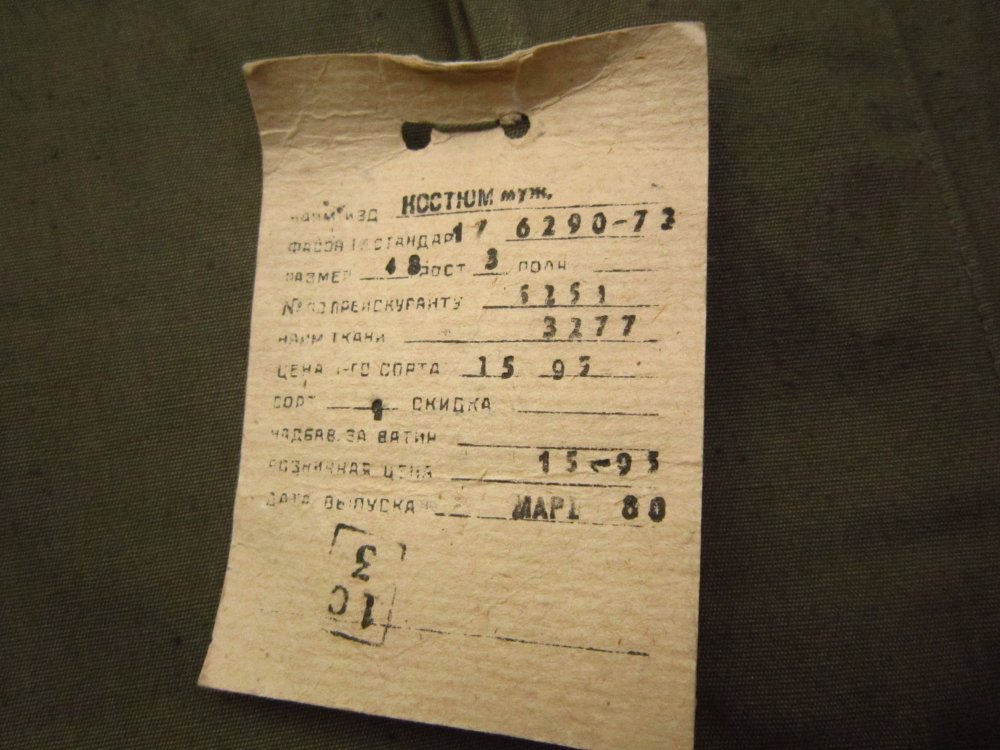 НАИМ ИЗД КОСТЮМ муж.
ФАСОН СТАНДАР 17 6290-73
РАЗМЕР 48 РОСТ 3 ПОЛН
№ ПО ПРЕЙСКУРАНТУ 6251
НАИМ ТКАНИ 3277
ЦЕНА 1-ГО СОРТА 15 95
СОРТ 1 СКИДКА
НАДБАВ. ЗА ВАТИН
РОЗНИЧНАЯ ЦЕНА 15-95
ДАТА ВЫПУСКА МАРТ 80
1С
3